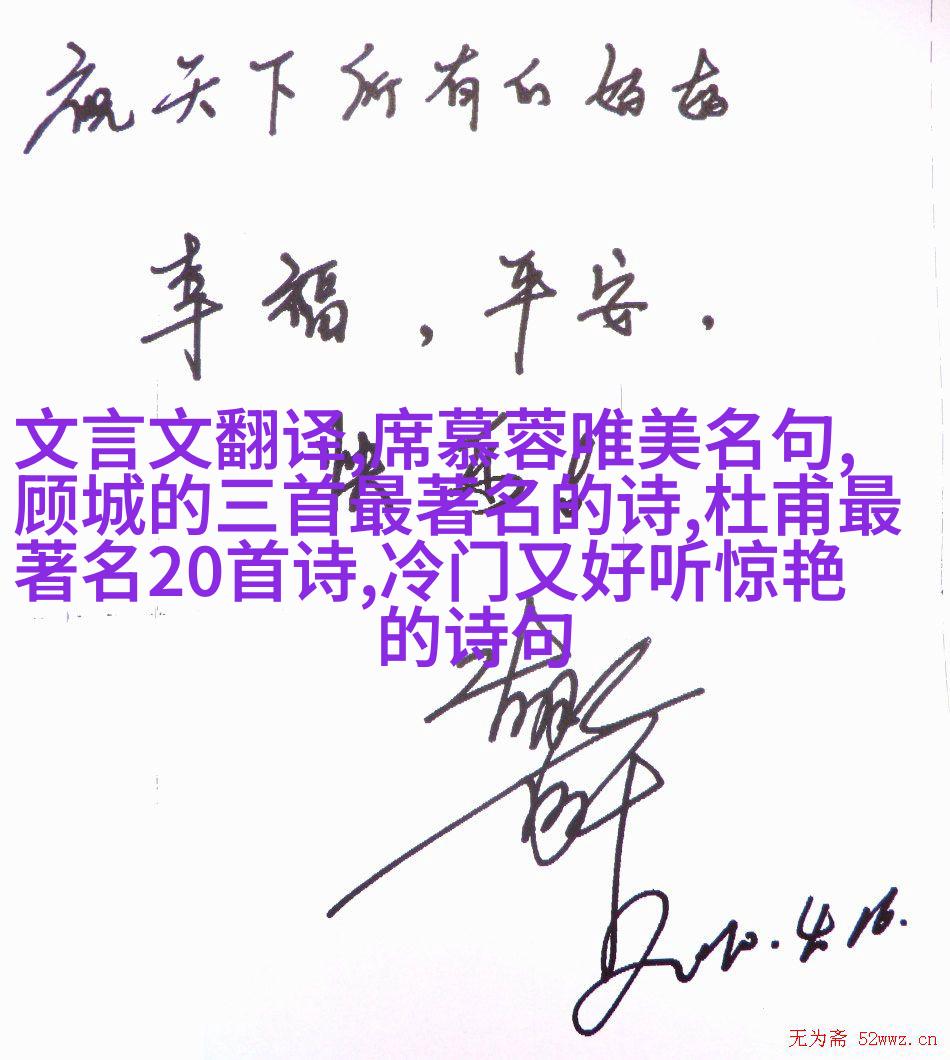 祝天下所有的妈妈
幸福，平安，
文言文翻译,席慕蓉唯美名句,
顾城的三首最著名的诗,杜甫最
著名20首诗,冷门又好听惊艳
的诗句
2010.4.16.
无为斋 52wwz.cn